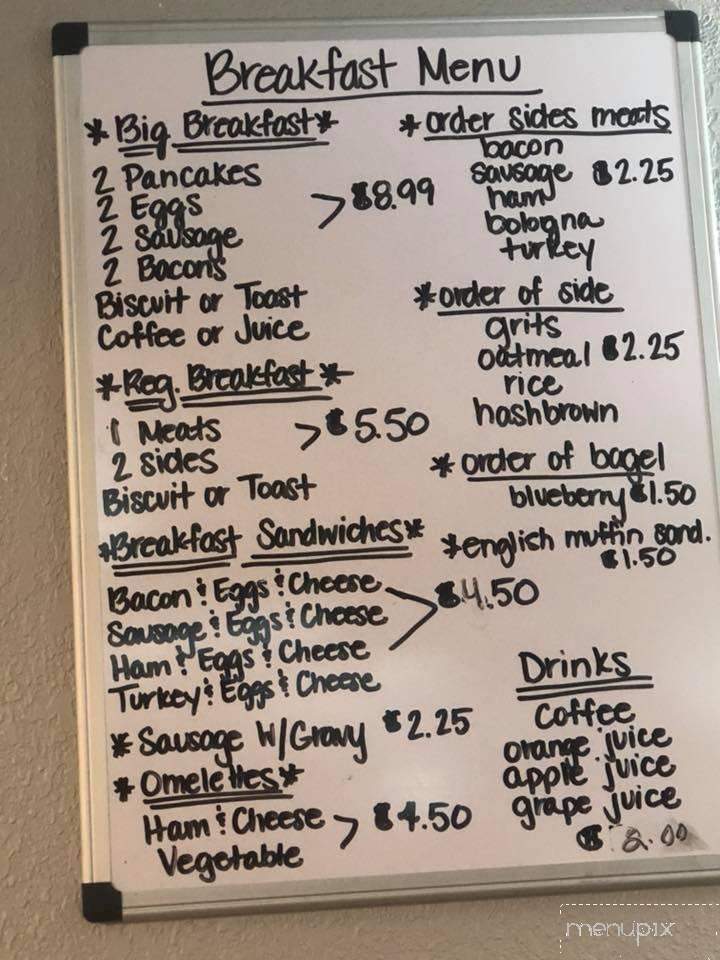 Breakfast Menu
*Big Breakfast*
2 Pancakes
2 Eggs > $8.99
2 Sausage
2 Bacons
Biscuit or Toast
Coffee or Juice
*Reg. Breakfast*
1 Meats > $5.50
2 sides
Biscuit or Toast
*Breakfast Sandwiches*
Bacon & Eggs & Cheese
Sausage & Eggs & Cheese > $4.50
Ham & Eggs & Cheese
Turkey & Eggs & Cheese
*Sausage W/Gravy $2.25
*Omelettes*
Ham & Cheese > $4.50
Vegetable
*order sides meats
bacon
sausage $2.25
ham
bologna
turkey
*order of side
grits
oatmeal $2.25
rice
hashbrown
*order of bagel
blueberry $1.50
*english muffin sand.
$1.50
Drinks
coffee
orange juice
apple juice
grape juice
$2.00
menupix